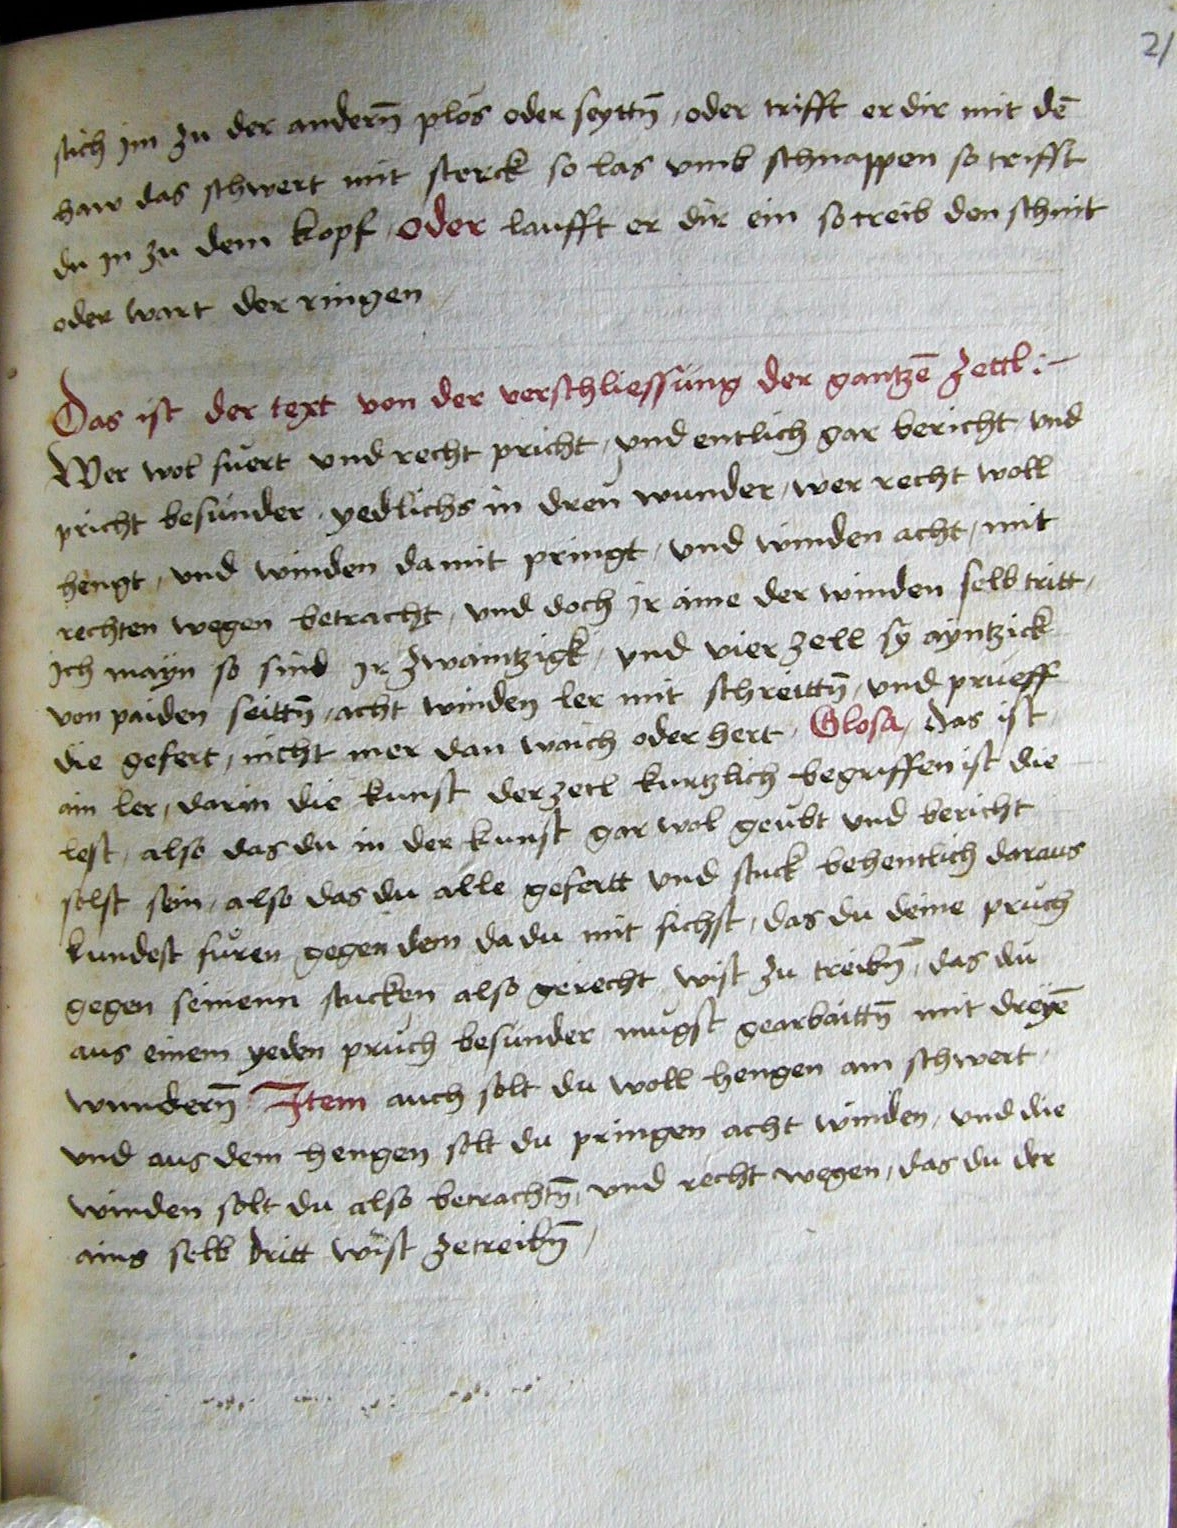 21
stich im zu der anderñ plos oder seyttñ / oder trifft er dir mit dē
haw das schwert mit sterck so las vmb schnappen so trifft
du in zu dem kopf / oder laufft er dir ein so treib den schnit
oder wart der ringen /
Das ist der text von der verschliessung der gantzē zettl :-
Wer wol fuert vnd recht pricht / vnd entlich gar bericht vnd
pricht besunder / yedlichs in dreu wunder / wer recht woll
hengt / vnd winden damit pringt / vnd winden acht / mit
rechten wegen betracht / vnd doch ir aine der winden selb tritt /
Ich mayn so sind ir zwaintzigk / vnd vier zell sy ayntzick
von paiden seittñ / acht winden ler mit schreittñ / vnd prueff
die gefert / nicht mer dan waich oder hert / Glosa / das ist
ain ler / darin die kunst der zetl kurtzlich begriffen ist die
lest / also das du in der kunst gar wol geubt vnd bericht
solst sein / also das du alle gefertt vnd stuck behentlich daraus
kundest fuͦren gegen dem da du mit fichst / das du deine pruch
gegen seinenn stucken also gerecht wist zu treibñ / das du
aus einem yeden pruch besunder mugst gearbaittñ mit dreyē
wunderñ Item auch solt du woll hengen am schwert /
vnd aus dem hengen solt du pringen acht winden / vnd die
winden solt du also betrachtñ / vnd recht wegen / das du der
ains selb dritt wist zetreibñ /